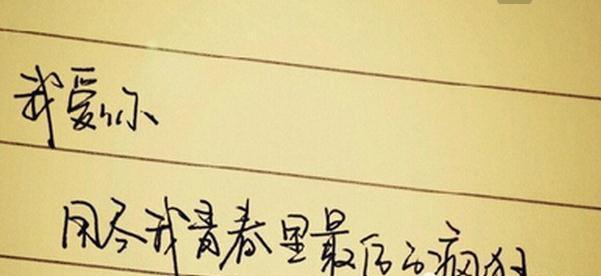 我爱你
用尽我青春里最后的疯狂